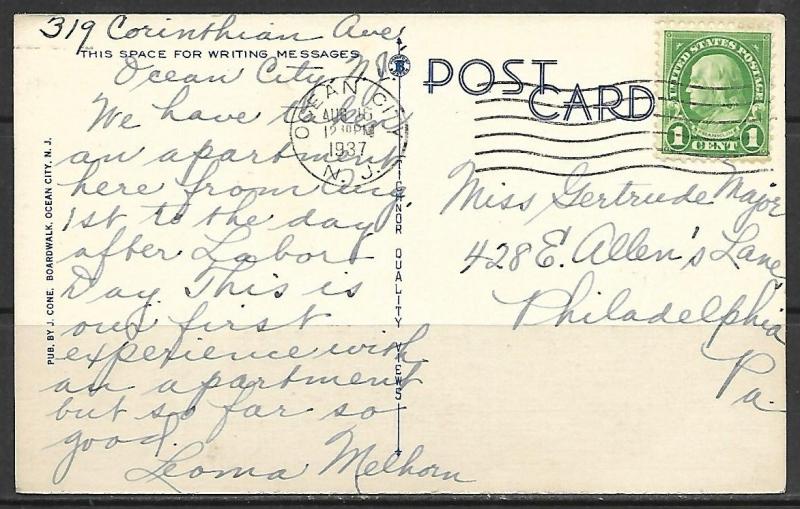 319 Corinthian Ave
THIS SPACE FOR WRITING MESSAGES
Ocean City, N.J.
We have taken
an apartment
here from Aug.
1st to the day
after Labor
Day. This is
our first
experience with
an apartment
but so far so
good.
Leona Melhorn
PUB. BY J. CONE, BOARDWALK, OCEAN CITY, N. J.
QUALITY VIEWS
POST CARD
OCEAN CITY
AUG 16
12 30 PM
1937
N. J.
UNITED STATES POSTAGE
FRANKLIN
1 CENT 1
Miss Gertrude Major
428 E. Allen's Lane
Philadelphia
Pa.